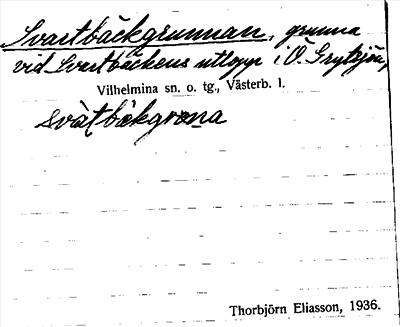 Svartbäckgrunnan, grunna
vid Svartbäckens utlopp i Ö. Grytsjön,
Vilhelmina sn. o. tg., Västerb. l.
svàt̩bäkgrona
Thorbjörn Eliasson, 1936.